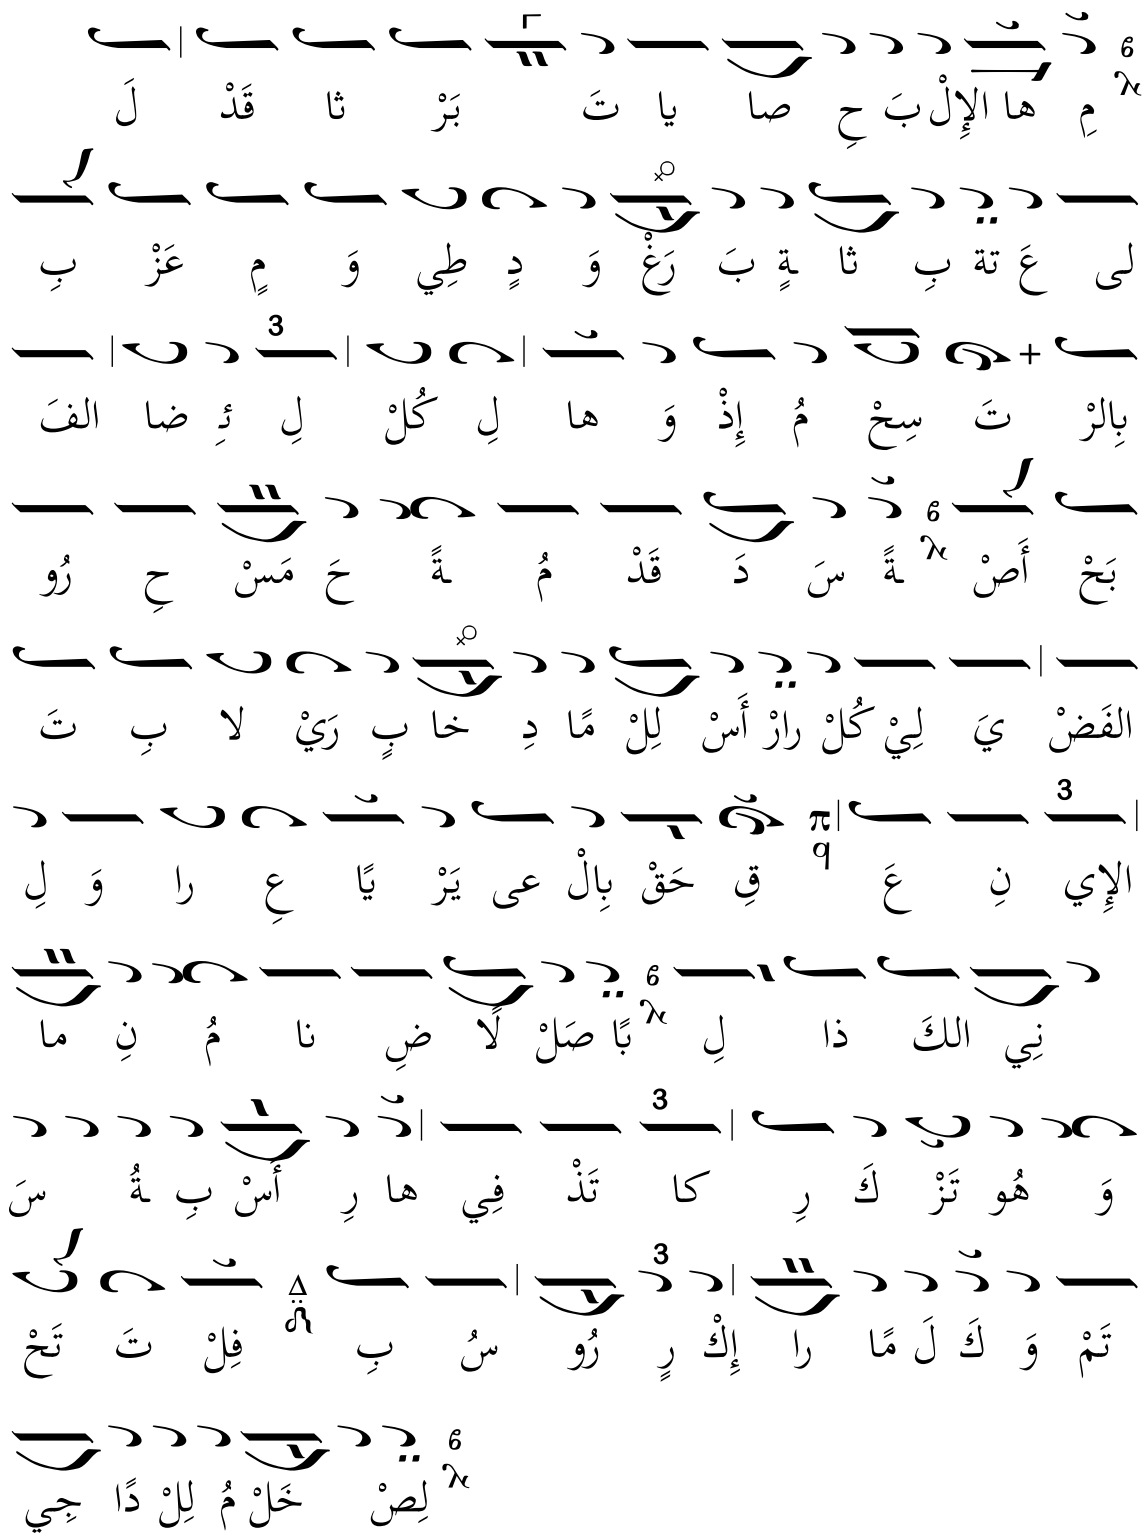 لَ قَدْ ثا بَرْ تَ يا صا حِ بَ الإِلْ ها مِ
بِ عَزْ مٍ وَ طِي دٍ وَ رَغْ بَ ةٍ ثا بِ تة عَ لى
الفَ ضا ئِ لِ كُلْ لِ ها وَ إِذْ مُ سِحْ تَ بِالرْ
رُو حِ مَسْ حَ ةً مُ قَدْ دَ سَ ةً أَصْ بَحْ
تَ بِ لا رَيْ بٍ خا دِ مًا لِلْ أَسْ رارْ كُلْ لِيْ يَ الفَضْ
لِ وَ را عِ يًا يَرْ عى بِالْ حَقْ قِ عَ نِ الإِي
ما نِ مُ نا ضِ لًا صَلْ بًا لِ ذا الكَ نِي
سَ ةُ بِ أَسْ رِ ها فِي تَذْ كا رِ كَ تَزْ هُو وَ
تَحْ تَ فِلْ بِ سُ رُو رٍ إِكْ را مًا لَ كَ وَ تَمْ
جِي دًا لِلْ مُ خَلْ لِصْ